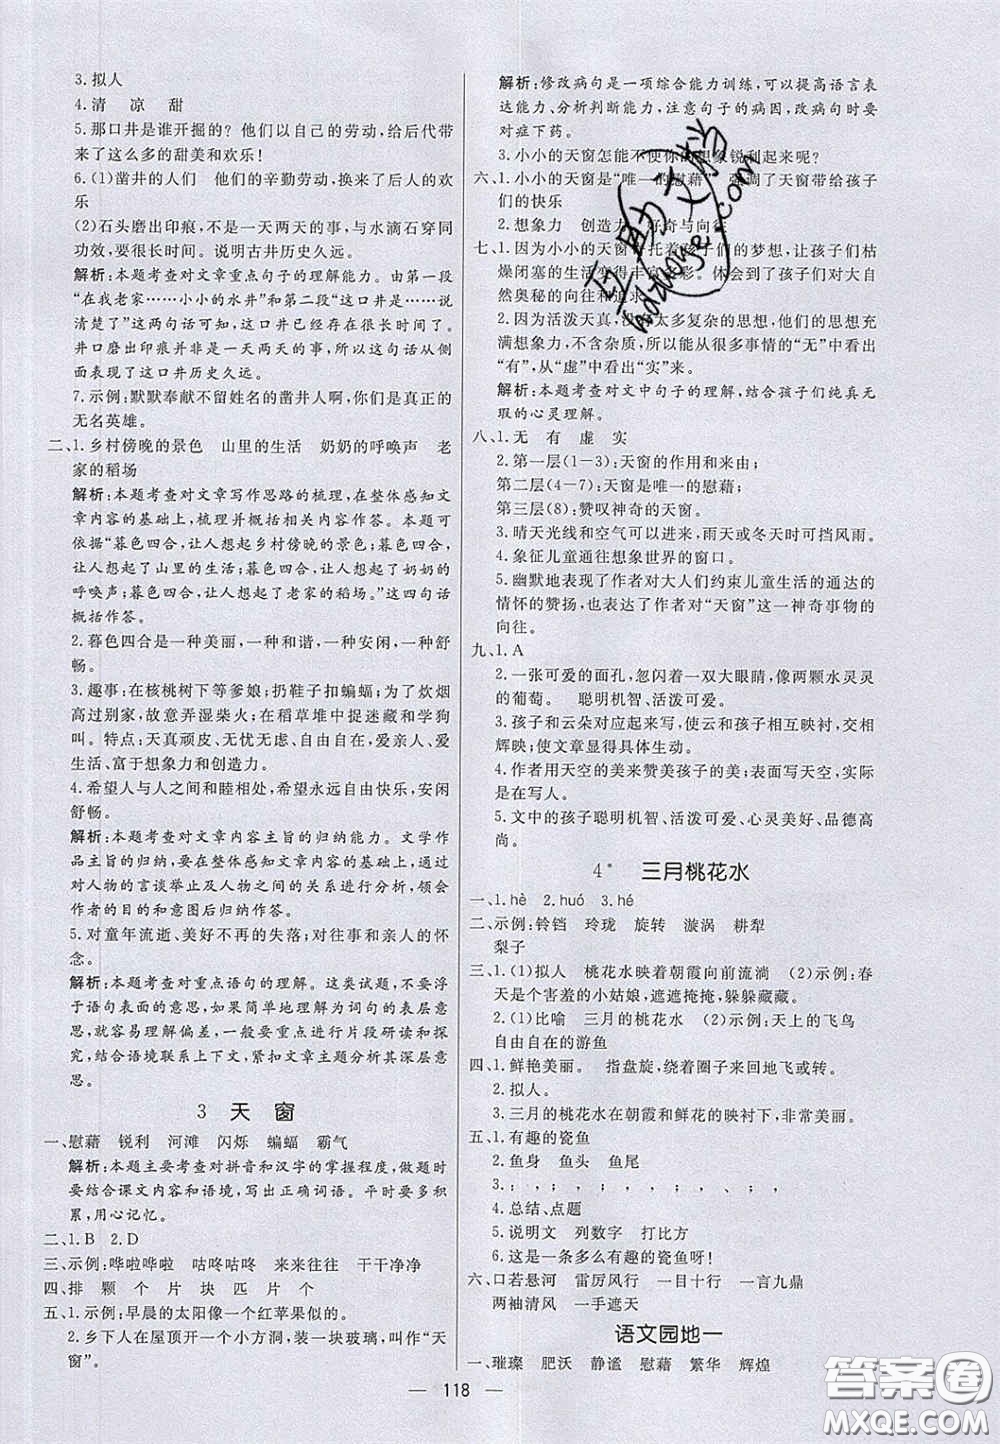 3.拟人
4.清 凉 甜
5.那口井是谁开掘的?他们以自己的劳动,给后代带
来了这么多的甜美和欢乐!
6.(1)凿井的人们 他们的辛勤劳动,换来了后人的欢
乐
(2)石头磨出印痕,不是一天两天的事,与水滴石穿同
功效,要很长时间。说明古井历史久远。
解析:本题考查对文章重点句子的理解能力。由第一段
“在我老家……小小的水井”和第二段“这口井是我说
清楚了”这两句话可知,这口井已经存在很长时间了。
井口磨出印痕并非一天两天的事,所以这句话从侧
面表现了这口井历史久远。
7.示例:默默奉献不留姓名的凿井人啊,你们是真正的
无名英雄。
二、1.乡村傍晚的景色 山里的生活 奶奶的呼唤声 老
家的稻场
解析:本题考查对文章写作思路的梳理,在整体感知
文章内容的基础上,梳理并摘录相关内容作答。本题可
依据“暮色四合,让人想起乡村傍晚的景色;暮色四合,
让人想起了山里的生活;暮色四合,让人想起了奶奶的
呼唤声;暮色四合,让人想起了老家的稻场。”这四句话
概括作答。
2.暮色四合是一种美丽,一种和谐,一种安闲,一种舒
畅。
3.趣事:在核桃树下等爹娘;扔鞋子扣蝙蝠;为了炊烟
高过别家,故意弄湿柴火;在稻草堆中捉迷藏和学狗
叫。特点:天真顽皮、无忧无虑、自由自在,爱亲人、爱
生活、富于想象力和创造力。
4.希望人与人之间和睦相处,希望永远自由快乐,安闲
舒畅。
解析:本题考查对文章内容主旨的归纳能力。文学作
品主旨的归纳,要在整体感知文章内容的基础上,通过
对人物的言谈举止及人物之间的关系进行分析,领会
作者的目的和意图后归纳作答。
5.对童年流逝、美好不再的失落;对往事和亲人的怀
念。
解析:本题考查对重点语句的理解。这类试题,不要浮
于语句表面的意思,如果简单地理解为词句的表层意
思,就容易理解偏差,一般要重点进行片段研读和探
究,结合语境联系上下文,紧扣文章主题分析其深层意
思。
3 天 窗
一、慰藉 锐利 河滩 闪烁 蝙蝠 霸气
解析:本题主要考查对拼音和汉字的掌握程度,做题时
要结合课文内容和语境,写出正确词语。平时要多积
累,用心记忆。
二、1.B 2.D
三、示例:哗啦哗啦 咕咚咕咚 来来往往 干干净净
四、排 颗 个 片 块 匹 片 个
五、1.示例:早晨的太阳像一个红苹果似的。
2.乡下人在屋顶开一个小方洞,装一块玻璃,叫作“天
窗”。
解析:修改病句是一项综合能力训练,可以提高语言表
达能力、分析判断能力,注意句子的病因,改病句时要
对症下药。
3.小小的天窗怎能不使你的想象锐利起来呢?
六、1.小小的天窗是“唯一的慰藉” 强调了天窗带给孩子
们的快乐
2.想象力 创造力 好奇与向往
七、1.因为小小的天窗寄托着孩子们的梦想,让孩子们枯
燥闭塞的生活变得丰富多彩。体会到了孩子们对大自
然奥秘的向往和追求。
2.因为活泼天真,没有太多复杂的思想,他们的思想充
满想象力,不含杂质,所以从很多事情的“无”中看出
“有”,从“虚”中看出“实”来。
解析:本题考查对文中句子的理解,结合孩子们纯真无
瑕的心灵理解。
八、1.无 有 虚 实
2.第一层(1-3):天窗的作用和来由;
第二层(4-7):天窗是唯一的慰藉;
第三层(8):赞叹神奇的天窗。
3.晴天光线和空气可以进来,雨天或冬天时可挡风雨。
4.象征儿童通往想象世界的窗口。
5.幽默地表现了作者对大人们约束儿童生活的通达的
情怀的赞扬,也表达了作者对“天窗”这一神奇事物的
向往。
九、1.A
2.一张可爱的面孔,忽闪着一双大眼睛,像两颗水灵灵
的葡萄。 聪明机智、活泼可爱。
3.孩子和云朵对应起来写,使云和孩子相互映衬,交相
辉映;使文章显得具体生动。
4.作者用天空的美来赞美孩子的美;表面写天空,实则
是在写人。
5.文中的孩子聪明机智、活泼可爱、心灵美好、品德高
尚。
4* 三月桃花水
一、1.hè 2.huó 3.hé
二、示例:铃铛 玲珑 旋转 漩涡 耕犁
梨子
三、1.(1)拟人 桃花水映着朝霞向前流淌 (2)示例:春
天是个害羞的小姑娘,遮遮掩掩,躲躲藏藏。
2.(1)比喻 三月的桃花水 (2)示例:天上的飞鸟
自由自在的游鱼
四、1.鲜艳美丽。 指盘旋,绕着圈子来回地飞或转。
2.拟人。
3.三月的桃花水在朝霞和鲜花的映衬下,非常美丽。
五、1.有趣的瓷鱼
2.鱼身 鱼头 鱼尾
3.; , ; , ; , ; , 、 ;
4.总结、点题
5.说明文 列数字 打比方
6.这是一条多么有趣的瓷鱼呀!
六、口若悬河 雷厉风行 一目十行 一言九鼎
两袖清风 一手遮天
语文园地一
一、璀璨 肥沃 静谧 慰藉 繁华 辉煌
118
助文档
答案圈
MXQE.COM